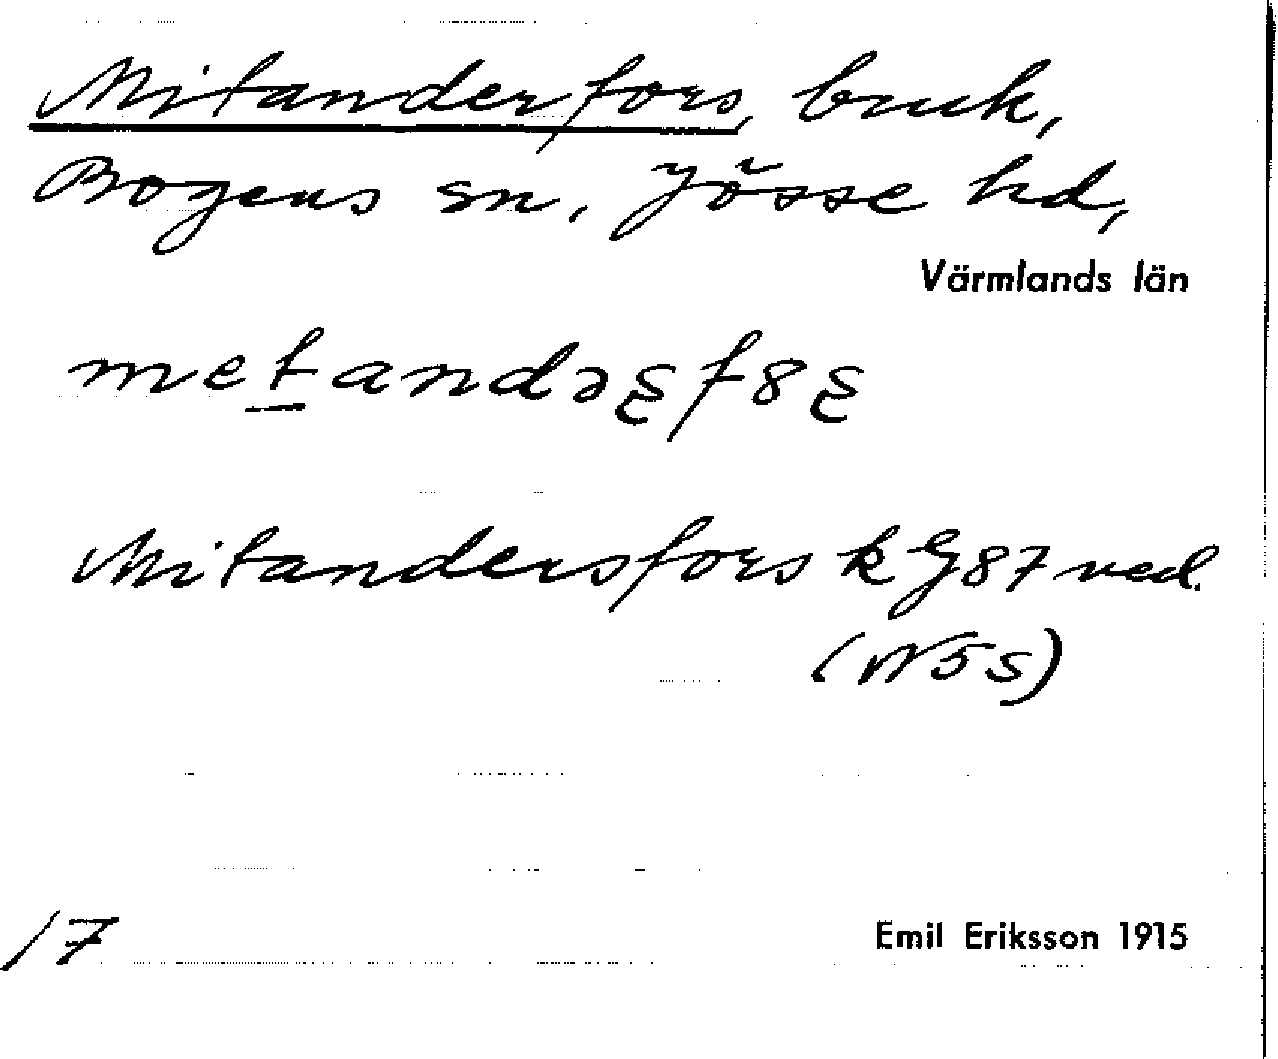 Mitandersfors, bruk,
Bogens sn, Jösse hd,
Värmlands län
Mitandersfors k G87 ved.
(NV5s)
17
Emil Eriksson 1915